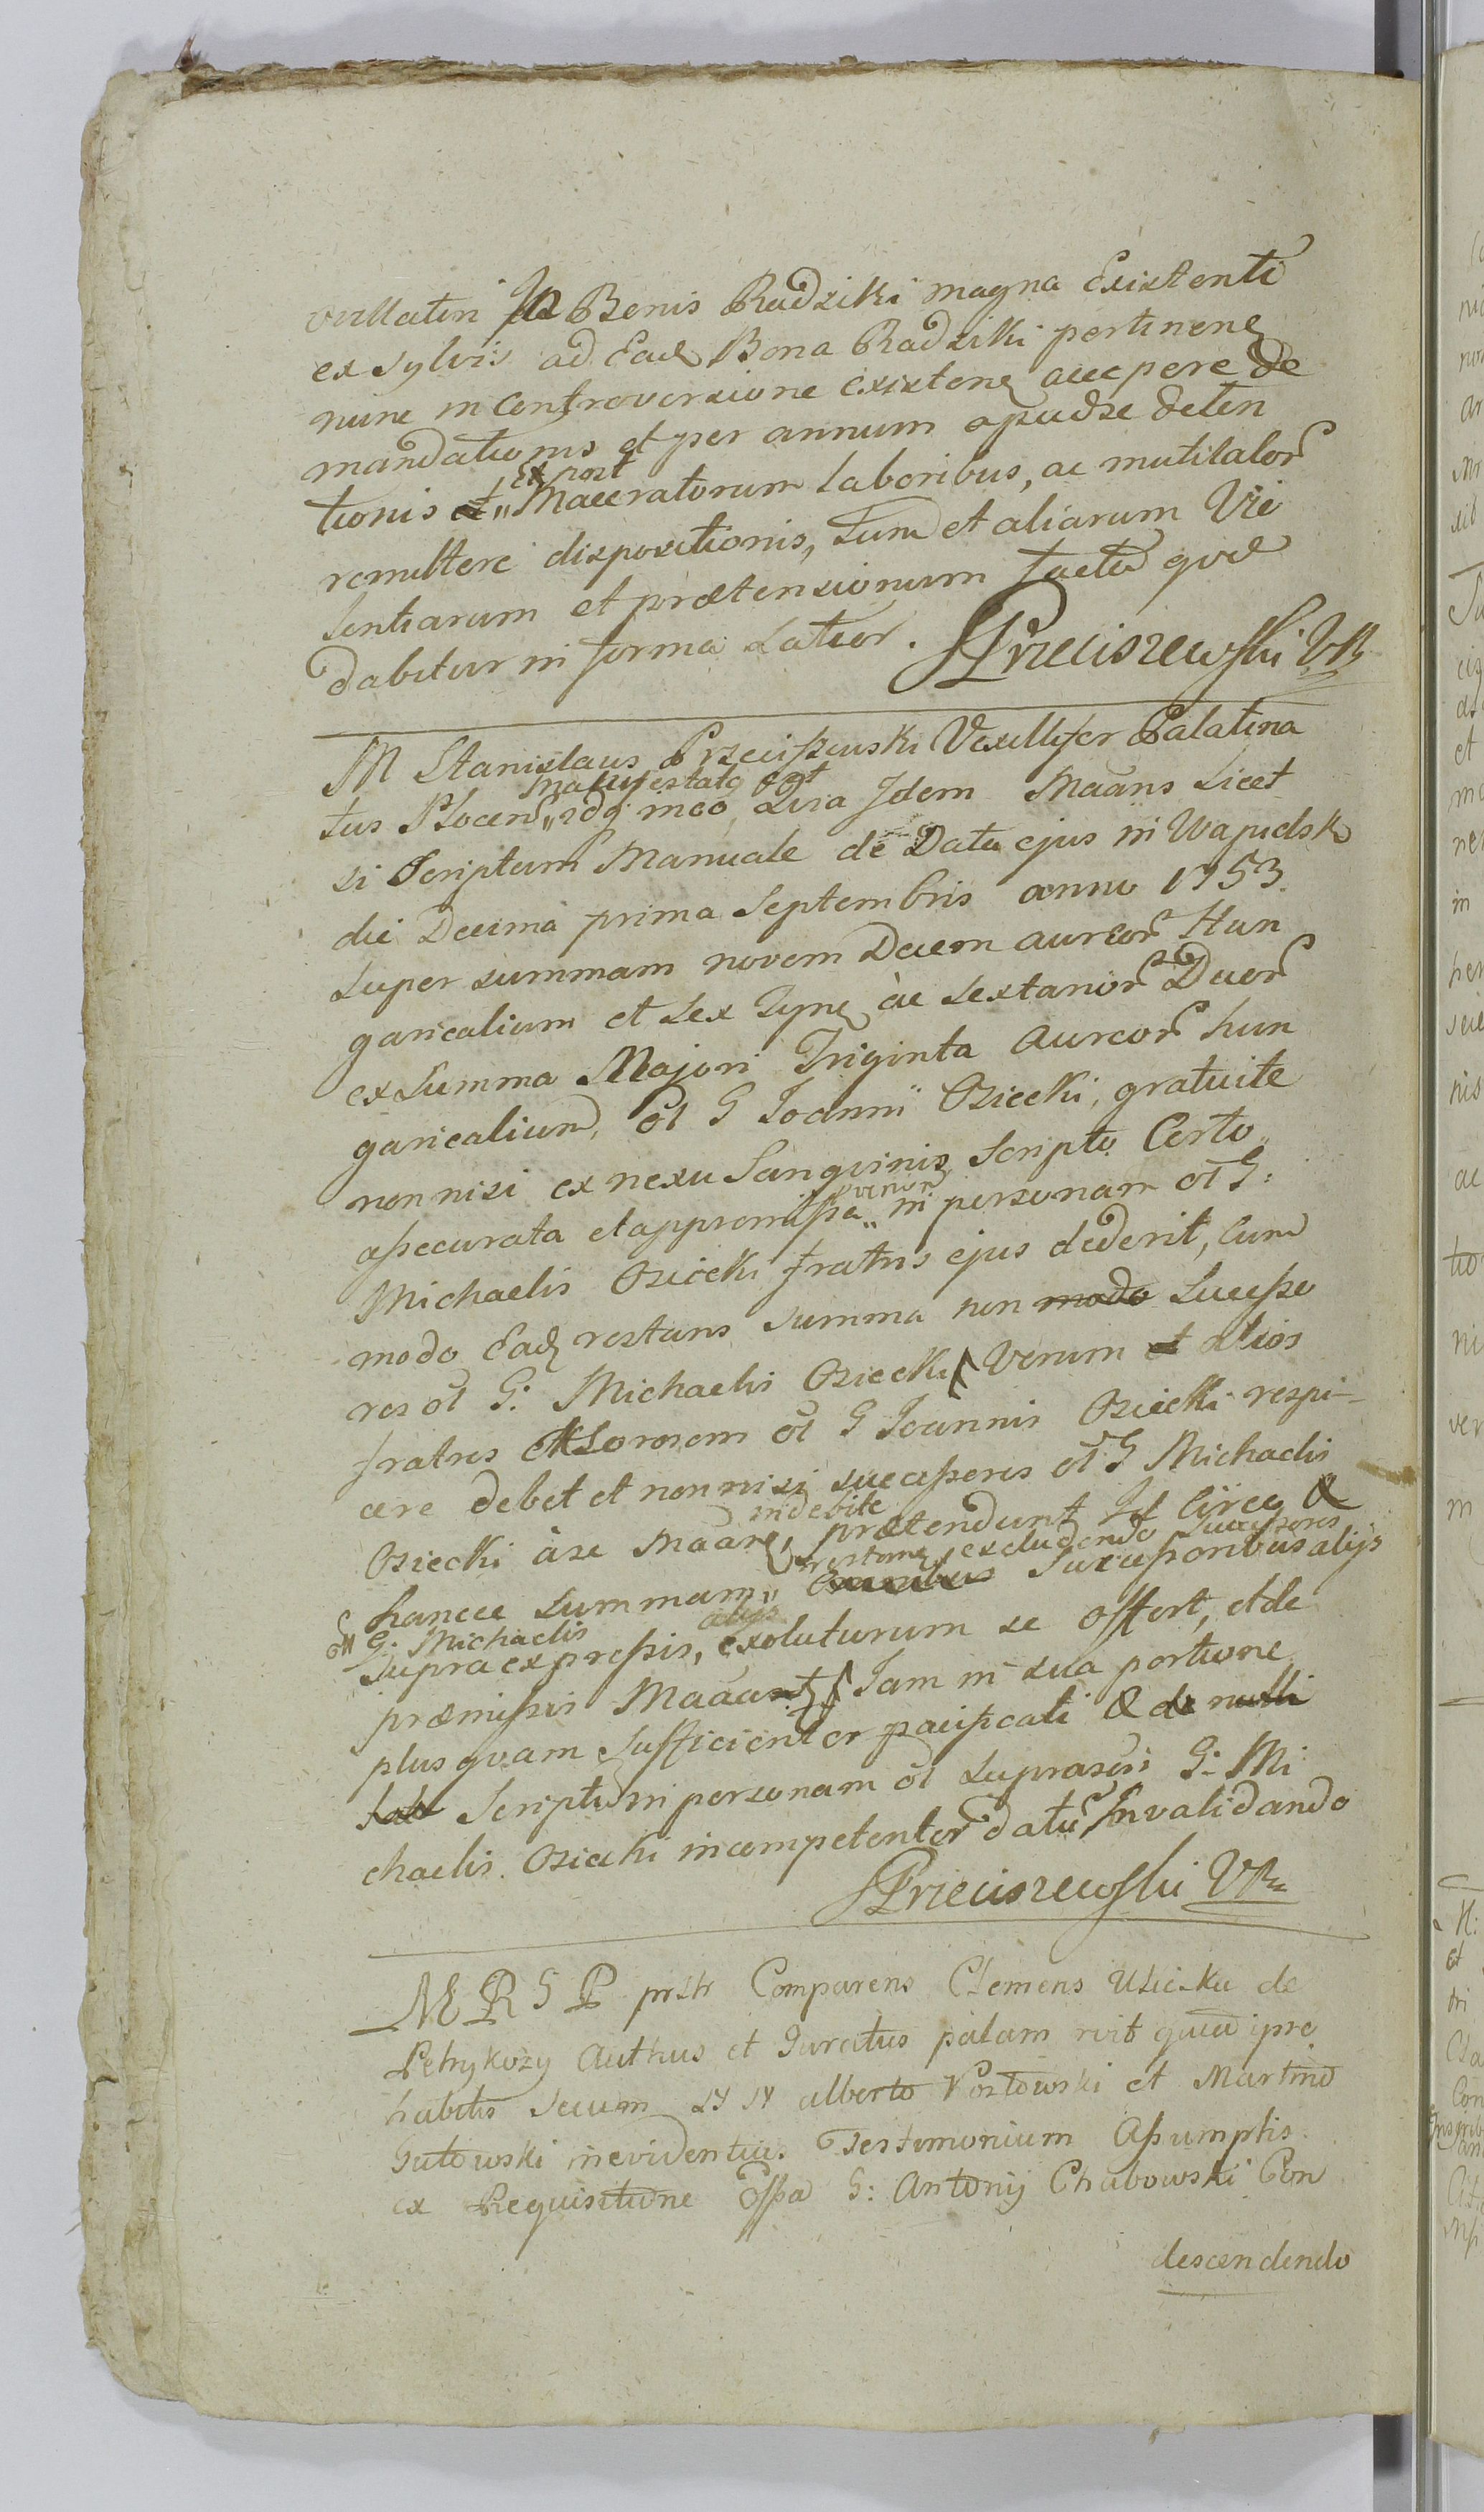 villatim in Bonis Radziki magna Existenti
ex sylvis ad Eadq Bona Radziki pertinenq
nunc in Controversione existenq accepere de
mandationis et per annum apud se deten
Ex post
tionis et „ Maceratorum Laboribus, ac mutilator
remittere dispositionis, tum et aliarum Vio
lentiarum et prætensionum facta qvæ
dabitur in forma Latior.
SPrzeciszewski VR
M Stanislaus Przeciszewski Vexillifer Palatina
manifestatq est
tus Plocen „ Idq meo Quia Idem Maans Licet
si Scriptum Manuale de Data ejus in Wapielsk
die Decima prima Septembris anno 1753.
super summam novem Decem aureor Hun
garicalium et sex Tynq ac sextanor Duor
ex Summa Majori Triginta Aureor hun
garicalium, ol G Joanni Osiecki, gratuite
non nisi ex nexu Sangvinis Scripto Certo
assecurata et appromissa „ in personam ol G:
Michaelis Osiecki fratris ejus dederit, Cum
modo Eadq restans summa non modo Successo
res ol G: Michaelis Osiecki Verum et alios
fratres et Sororem ol G Joannis Osiecki respi-
cere debet et non nisi successores ol G Michaelis
indebite
Osiecki à se Maanq, prætendunt Id Circo &
restanq excludendo Successores
hance summam „ omnibus Successoribus alijs
ol G: Michaelis alijs
supra expressis, exoluturum se offert, et de
præmissis Maaant Jam in sua portione
plus qvam sufficienter pacificati & de nulli
Scriptum in personam ol suprascri G: Mi
chaelis Osiecki incompetenter datu Invalidando
SPrzeciszewski VR
M R G P prstr Comparens Clemens Usicka de
Petrykozy Authus et Juratus palam rvit quia ipse
habitis secum alberto Kozłowski et Martino
Gutowski in evidentius Testimonium Assumptis
ex Requisitione G: Antonij Chabowski Con
descendendo